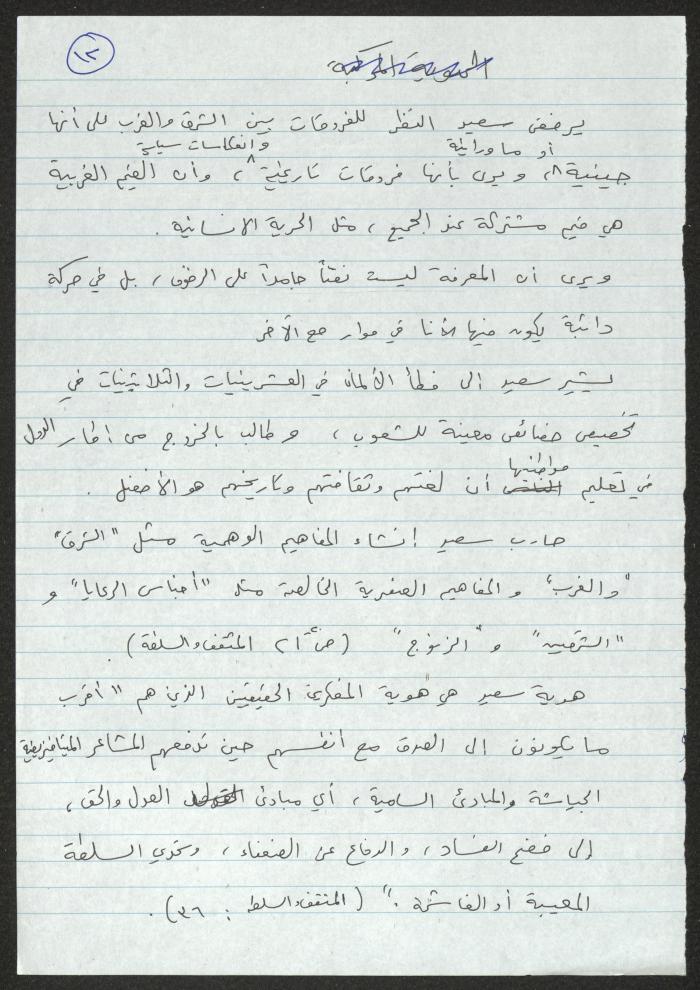 ١٢
الهوية المركبة
يرفض سعيد النظر للفروقات بين الشرق والغرب على أنها
أو ماورائية وانعكاسات سياسية
جينية ، ويرى بأنها فروقات تاريخية ، وأن القيم الغربية
هي قيم مشتركة عند الجميع ، مثل الحرية الانسانية .
ويرى أن المعرفة ليست نقشاً جامداً على الرفوف ، بل في حركة
دائبة يكون فيها الأنا في حوار مع الآخر
يشير سعيد إلى خطأ الألمان في العشرينيات والثلاثينيات في
تخصيص خصائص معينة للشعوب ، وطالب بالخروج من اطار الدول
مواطنيها
في تعليم أن لغتهم وثقافتهم وتاريخهم هو الأفضل .
حارب سعيد إنشاء المفاهيم الوهمية مثل "الشرق"
"والغرب" والمفاهيم العنصرية الخالصة مثل "أجناس الرعايا" و
"الشرقيين" و "الزنوج" (ص ٢١ المثقف والسلطة)
هوية سعيد هي هوية المفكرين الحقيقيين الذين هم "أقرب
ما يكونون إلى الصدق مع أنفسهم حين تدفعهم المشاعر الميتافيزيقية
الجياشة والمبادئ السامية ، أي مبادئ العدل والحق ،
إلى فضح الفساد ، والدفاع عن الضعفاء ، وتحدي السلطة
المعيبة أو الغاشمة ." (المثقف والسلطة : ٣٦) .